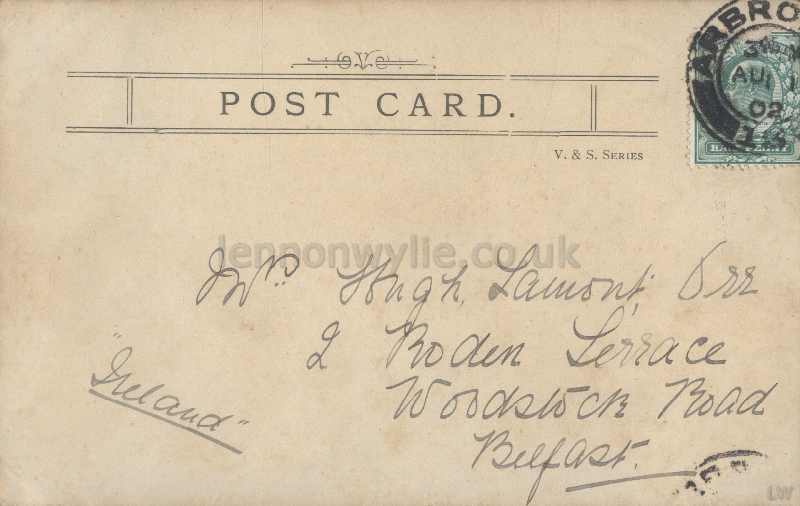 POST CARD.
V. & S. SERIES
ARBRO
AU 1
02
HALFPENNY
lennonwylie.co.uk
Mrs Hugh Lamont Orr
2 Roden Terrace
Woodstock Road
Belfast.
"Ireland"
LW